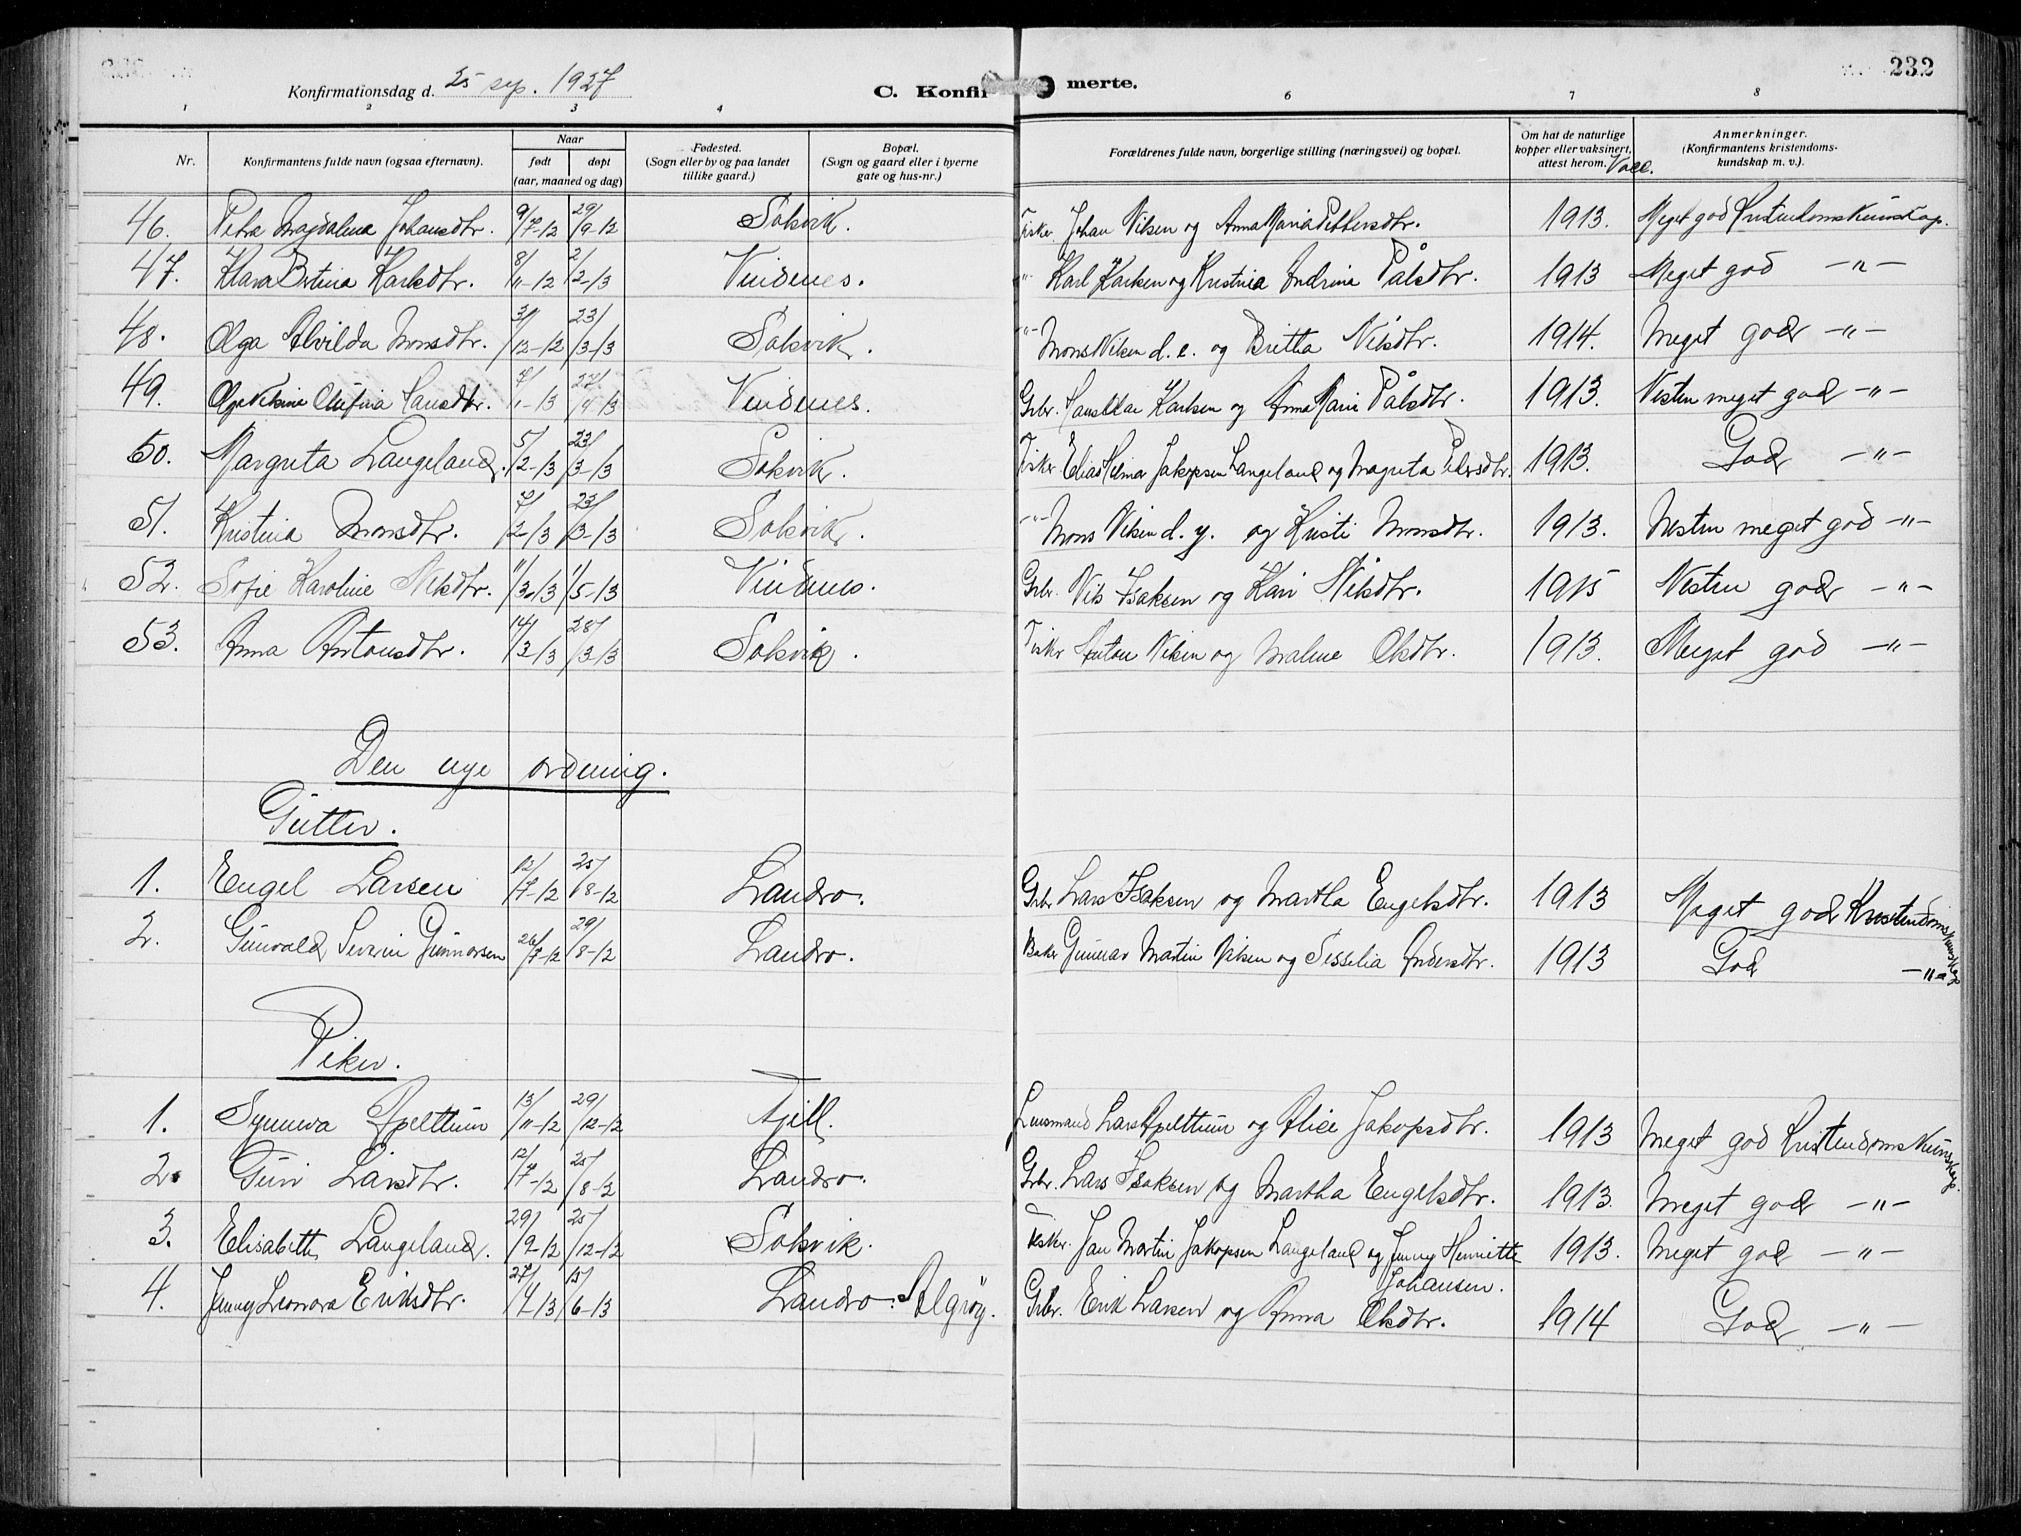 232
Konfirmationsdag d. 25 sep. 1927
C. Konfirmerte.
1 2 3 4 6 7 8
Nr. Konfirmantens fulde navn (ogsaa efternavn). Naar født døpt (aar, maaned og dag) Fødested. (Sogn eller by og paa landet tillike gaard.) Bopæl. (Sogn og gaard eller i byerne gate og hus-nr.) Forældrenes fulde navn, borgerlige stilling (næringsvei) og bopæl. Om hat de naturlige kopper eller vaksinert, attest herom. Vacc. Anmerkninger. (Konfirmantens kristendomskundskap m. v.).
46. Petra Magdalena Johansdtr. 9/7-12 29/9-12 Solsvik. Fisker Johan Nilsen og Anna Maria Pettersdtr. 1913. Meget god Kristendomskunnskap.
47. Klara Bertina Karlsdtr. 8/11-12 2/2-13 Vindenes. -"- Karl Karlsen og Kristina Andrina Pålsdtr. 1913 Meget god -"-
48. Olga Alvilda Monsdtr. 31/12-12 23/3-13 Solsvik. -"- Mons Nilsen d. e. og Britha Nilsdtr. 1914. Meget god -"-
49. Olga Nilsine Olufina Hansdtr. 7/1-13 27/4-13 Vindenes. Grbr. Hans Olai Karlsen og Anna Maria Pålsdtr. 1913. Nesten meget god -"-
50. Margreta Langeland. 5/2-13 23/3-13 Solsvik. Fisker Elias Hilmar Jakopsen Langeland og Magreta Pedersdtr. 1913. God -"-
51. Kristina Monsdtr. 7/2-13 23/3-13 Solsvik. -"- Mons Nilsen d. y. og Kristi Monsdtr. 1913. Nesten meget god -"-
52. Sofie Karoline Nilsdtr. 11/3-13 1/5-13 Vindenes. Grbr. Nils Isaksen og Kari Nilsdtr. 1915 Nesten god -"-
53. Anna Antonsdtr. 14/3-13 28/3-13 Solsvik. Fisker Anton Nilsen og Malene Olsdtr. 1913. Meget god -"-
Den nye ordning.
Gutter.
1. Engel Larsen 12/7-12 25/8-12 Landro. Grbr. Lars Isaksen og Martha Engelsdtr. 1913 Meget god Kristendomskunnskap
2. Gunvald Severin Gunnarsen 26/7-12 29/8-12 Landro. Baker Gunnar Martin Nilsen og Sesselia Andersdtr. 1913 God -"-
Piker.
1. Synneva Apeltun 13/11-12 29/12-12 Fjell. Lensmand Lars Apeltun og Alice Jakopsdtr. 1913 Meget god Kristendomskunnskap.
2. Guri Larsdtr. 12/7-12 25/8-12 Landro. Grbr. Lars Isaksen og Martha Engelsdtr. 1913. Meget god -"-
3. Elisabeth Langeland. 29/9-12 25/12-12 Solsvik. Fisker Jan Martin Jakopsen Langeland og Jenny Henriette Johansen. 1913. Meget god -"-
4. Jenny Leonora Eriksdtr. 27/4-13 15/6-13 Landro. Algrøy. Grbr. Erik Larsen og Anna Olsdtr. 1914 God -"-